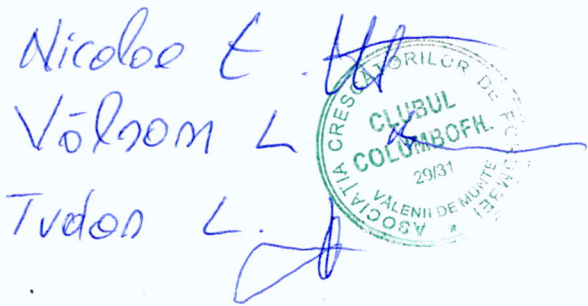 Nicolae E.
Vâlsan L
Tudor L.
ASOCIAȚIA CRESCĂTORILOR DE PORUMBEI
CLUBUL
COLUMBOFIL
29/31
VĂLENII DE MUNTE